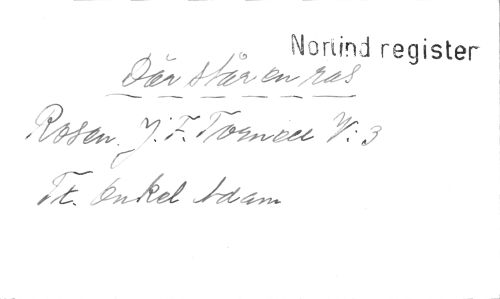 Norlind register
Där står en ros
Rosen. J. F. Törnell V: 3
Tx. Onkel Adam